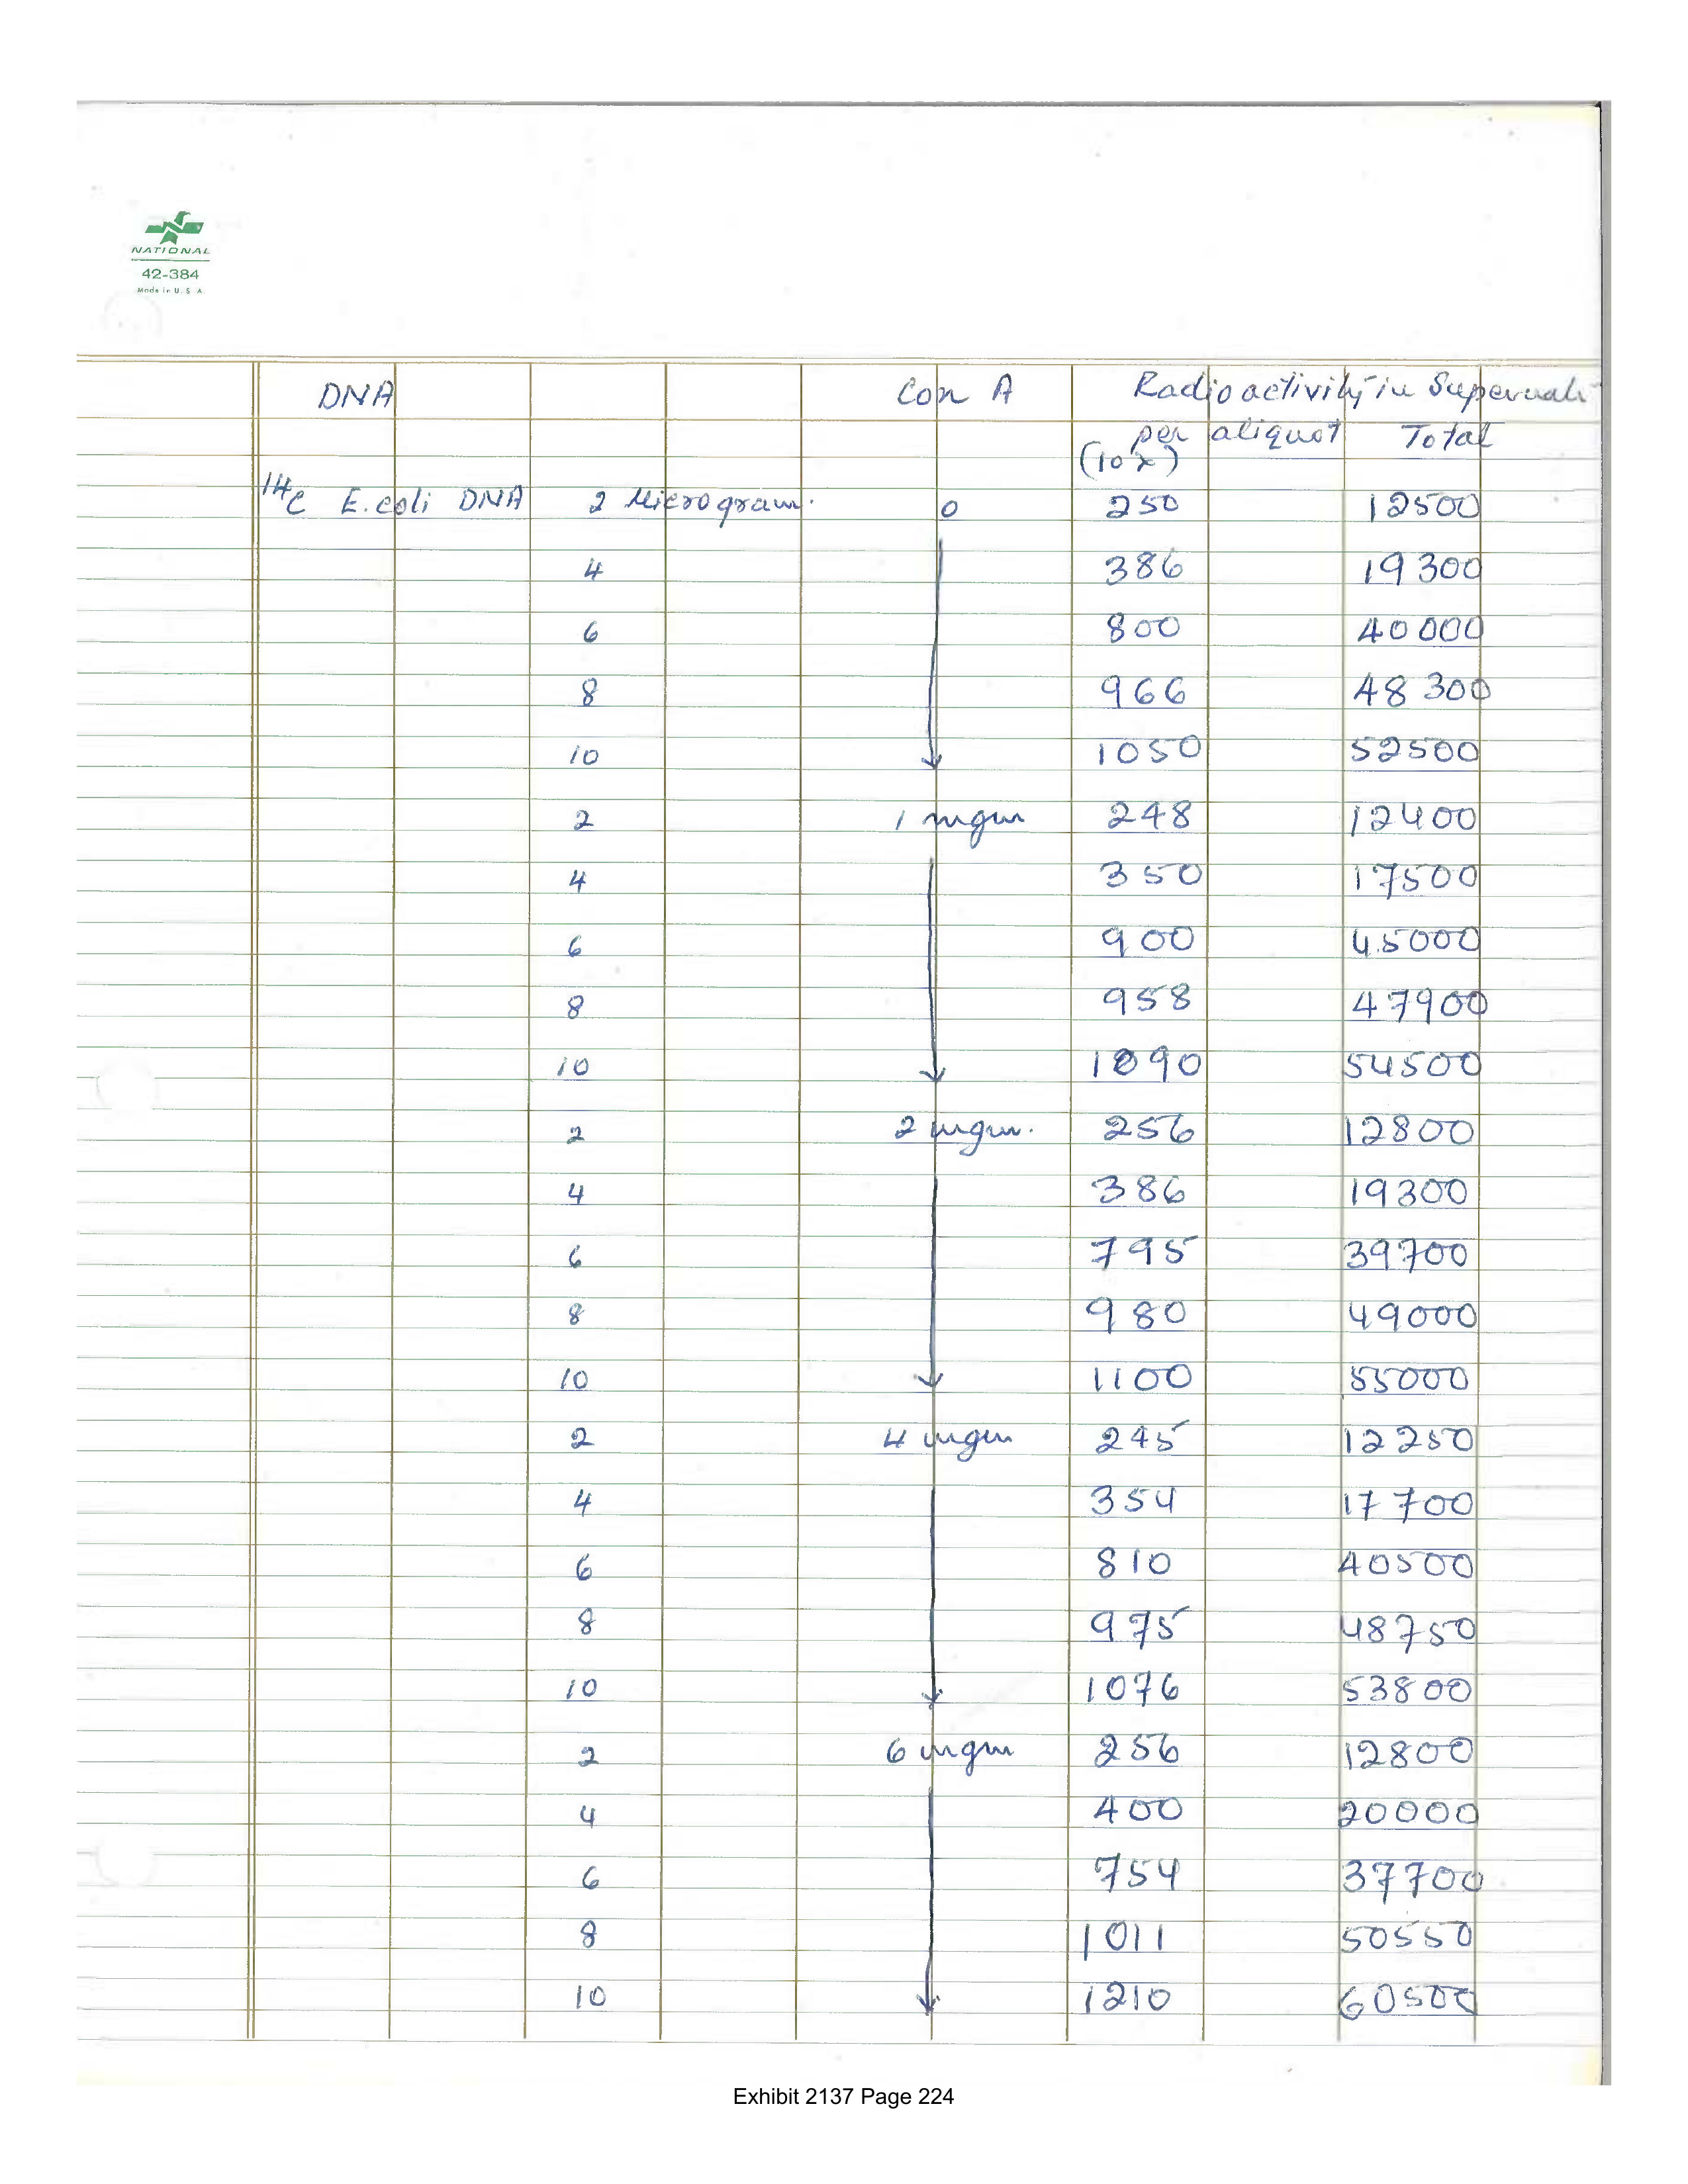 NATIONAL
42-384
Made in U.S.A.
DNA Con A Radioactivity in Supernah
per aliquot Total
(10 x)
14C E.coli DNA 2 Microgram. 0 250 12500
4 386 19300
6 800 40000
8 966 48300
10 1050 52500
2 1 mgm 248 12400
4 350 17500
6 900 45000
8 958 47900
10 1090 54500
2 2 mgm. 256 12800
4 386 19300
6 795 39700
8 980 49000
10 1100 55000
2 4 mgm 245 12250
4 354 17700
6 810 40500
8 975 48750
10 1076 53800
2 6 mgm 256 12800
4 400 20000
6 754 37700
8 1011 50550
10 1210 60500
Exhibit 2137 Page 224